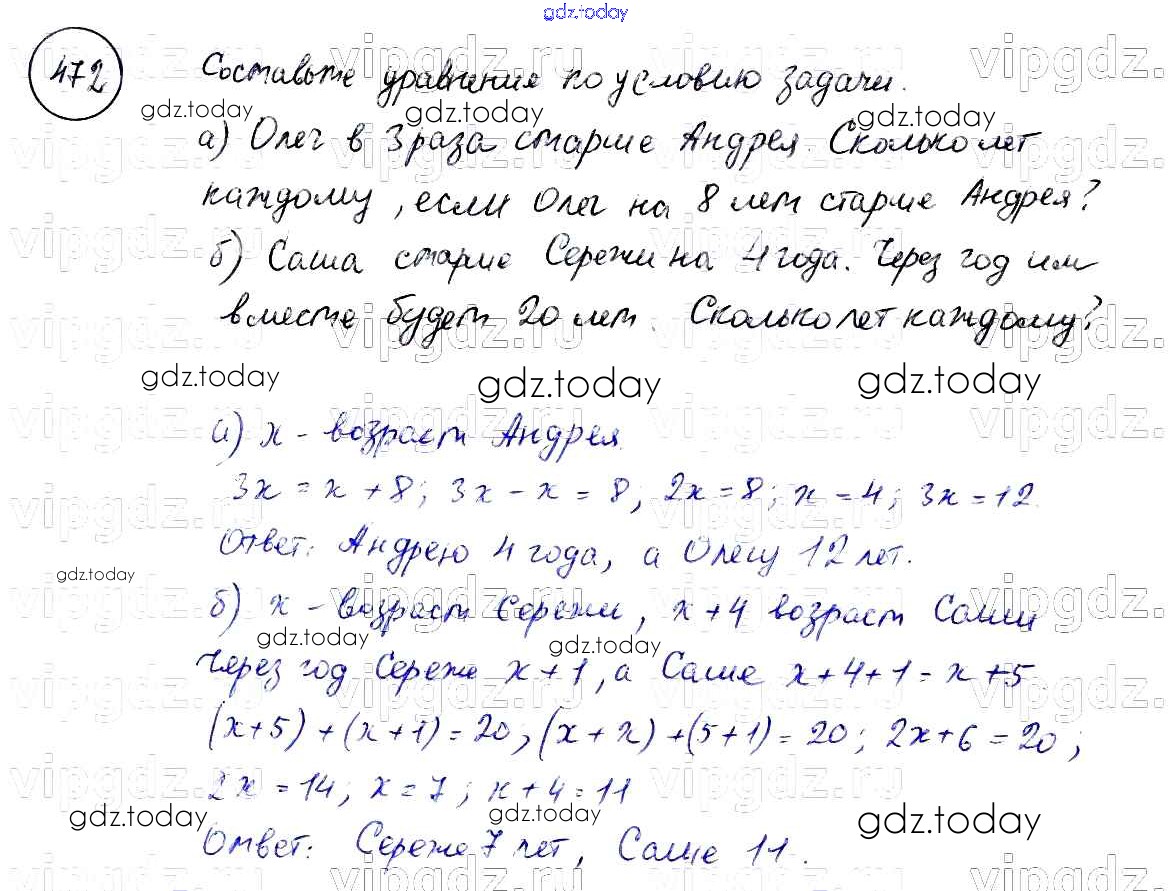 gdz.today
472 Составьте уравнение по условию задачи.
а) Олег в 3 раза старше Андрея. Сколько лет
каждому, если Олег на 8 лет старше Андрея?
б) Саша старше Сережи на 4 года. Через год им
вместе будет 20 лет. Сколько лет каждому?
gdz.today gdz.today gdz.today
а) x - возраст Андрея.
3x = x + 8; 3x - x = 8; 2x = 8; x = 4; 3x = 12.
Ответ: Андрею 4 года, а Олегу 12 лет.
gdz.today
б) x - возраст Сережи, x+4 возраст Саши
gdz.today gdz.today
Через год Сереже x+1, а Саше x+4+1 = x+5
(x+5) + (x+1) = 20; (x+x) + (5+1) = 20; 2x+6 = 20;
2x = 14; x = 7; x+4 = 11
gdz.today gdz.today gdz.today
Ответ: Сереже 7 лет, Саше 11.